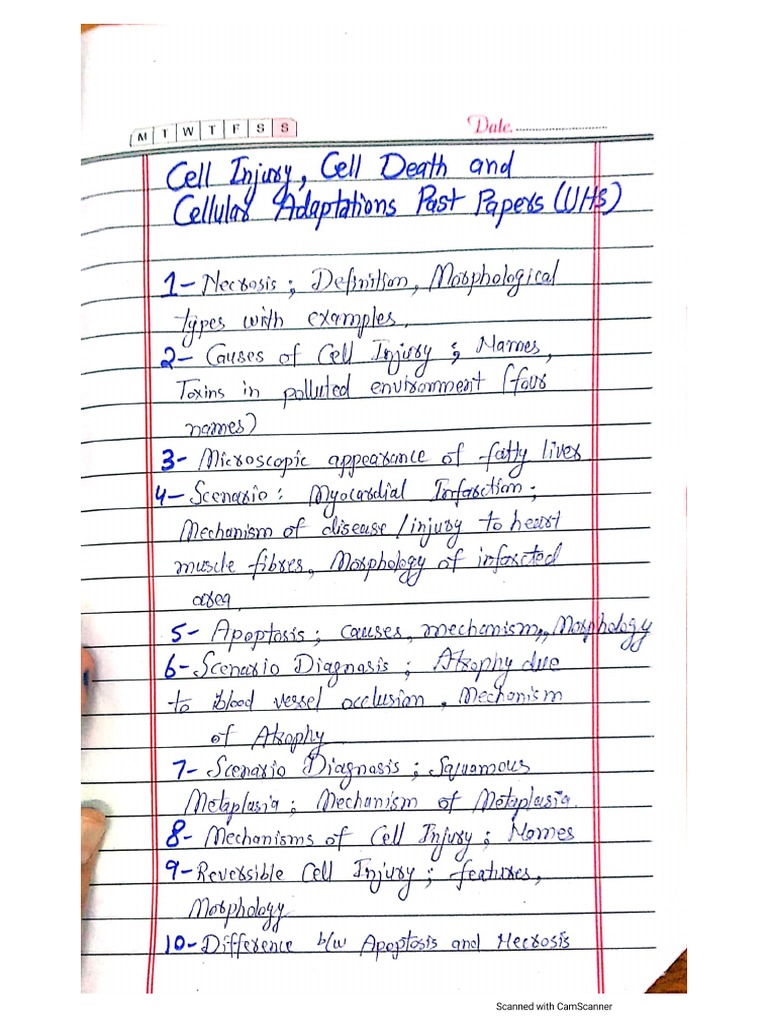 M T W T F S S
Date
Cell Injury, Cell Death and
Cellular Adaptations Past Papers (UHS)
1- Necrosis; Definition, Morphological
types with examples.
2- Causes of Cell Injury; Names,
Toxins in polluted environment (four
names)
3- Microscopic appearance of fatty liver
4- Scenario: Myocardial Infarction;
Mechanism of disease/injury to heart
muscle fibres, Morphology of infarcted
area.
5- Apoptosis; causes, mechanism, Morphology
6- Scenario Diagnosis; Atrophy due
to blood vessel occlusion, Mechanism
of Atrophy
7- Scenario Diagnosis; Squamous
Metaplasia; Mechanism of Metaplasia.
8- Mechanisms of Cell Injury; Names
9- Reversible Cell Injury; features,
Morphology
10- Difference b/w Apoptosis and Necrosis
Scanned with CamScanner